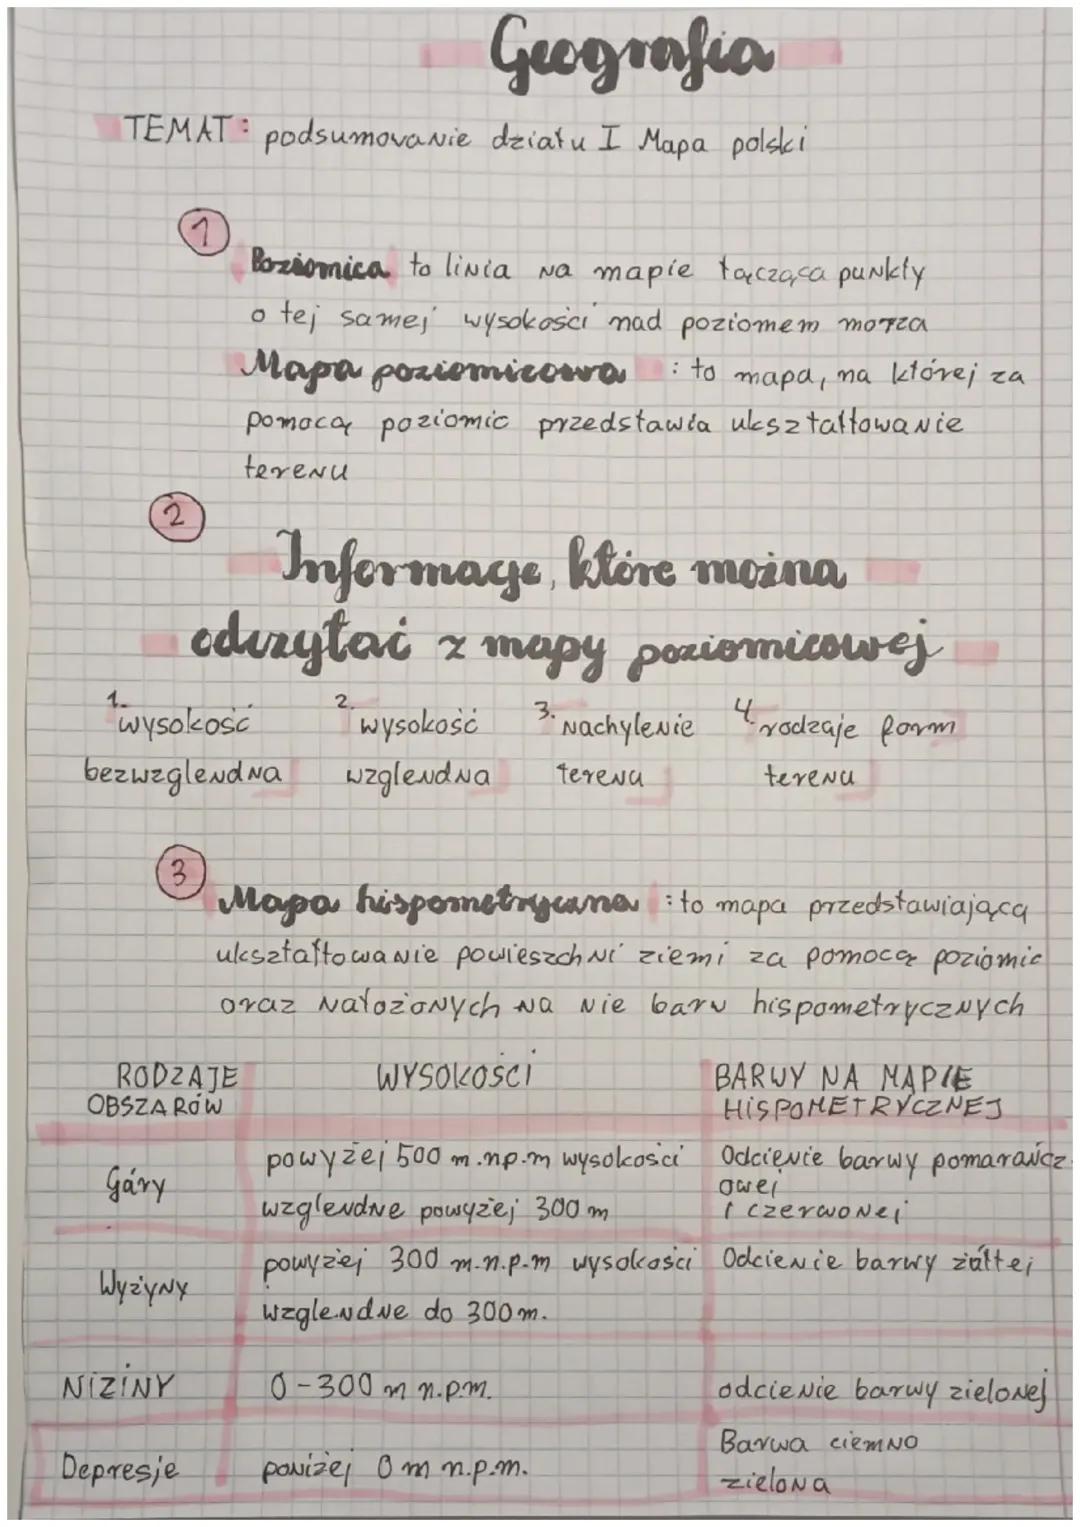 Geografia
TEMAT: podsumowanie działu I Mapa polski
1
Poziomica to linia na mapie łącząca punkty
o tej samej wysokości nad poziomem morza
Mapa poziomicowa : to mapa, na której za
pomocą poziomic przedstawia ukształtowanie
terenu
2
Informacje, które można
odczytać z mapy poziomicowej
1. wysokość 2. wysokość 3. Nachylenie 4. rodzaje form
bezwzglendna wzglendna terenu terenu
3
Mapa hispometryczna : to mapa przedstawiająca
ukształtowanie powieszchni ziemi za pomocą poziomic
oraz nałożonych na nie barw hispometrycznych
RODZAJE WYSOKOŚCI BARWY NA MAPIE
OBSZARÓW HISPOMETRYCZNEJ
Góry powyżej 500 m.np.m wysokości Odcienie barwy pomarańcz
owej
wzglendne powyżej 300 m i czerwonej
Wyżyny powyżej 300 m.n.p.m wysokości Odcienie barwy żółtej
wzglendne do 300m.
NIZINY 0-300 m n.p.m. odcienie barwy zielonej
Depresje poniżej 0 m n.p.m. Barwa ciemno
zielona